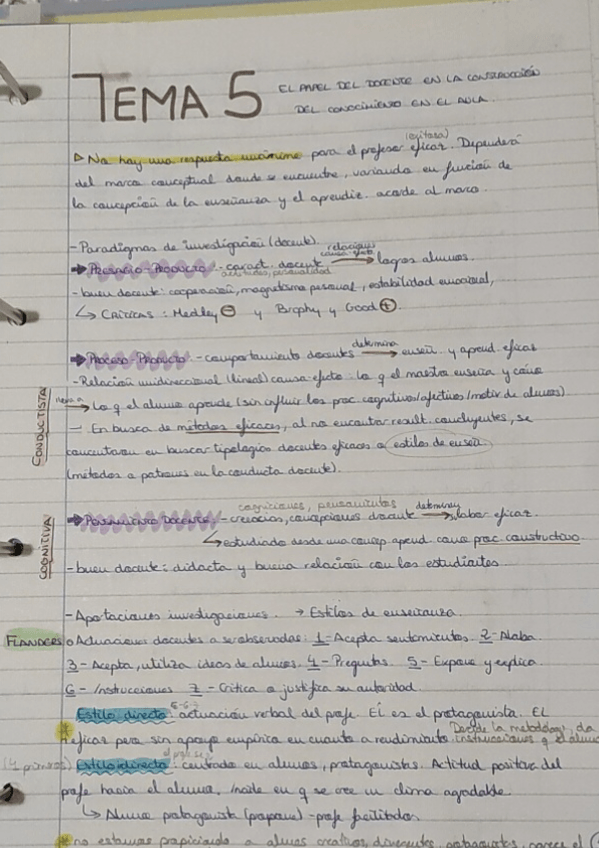 TEMA 5 EL PAPEL DEL DOCENTE EN LA CONSTRUCCIÓN
DEL CONOCIMIENTO EN EL AULA.
(exitosa)
▷ No hay una respuesta unánime para el profesor eficaz. Dependerá
del marco conceptual donde se encuentre, variando en función de
la concepción de la enseñanza y el aprendiz. acorde al marco.
- Paradigmas de investigación (docente). relación
causa-efecto
➡ PRESAGIO-PRODUCTO - caract. docente → logros alumnos.
actitudes, personalidad
- buen docente: cooperación, magnetismo personal, estabilidad emocional,
↳ CRÍTICAS: Medley ⊖ y Brophy y Good ⊕.
determina
➡ PROCESO-PRODUCTO - comportamiento docentes → enseñ. y aprend. eficaz
- Relación unidireccional (lineal) causa-efecto: lo q el maestro enseña y cómo
→ lo q el alumno aprende (sin influir los proc. cognitivos/afectivos/motiv. de alumnos)
CONDUCTISTA
- En busca de métodos eficaces, al no encontrar result. concluyentes, se
concentraron en buscar tipologías docentes eficaces o estilos de enseñ.
(métodos o patrones en la conducta docente).
cogniciones, pensamientos determinan
➡ PENSAMIENTO DOCENTE - creencias, concepciones docente → labor eficaz.
COGNITIVA
↳ estudiado desde una concep. aprend. como proc. constructivo
- buen docente: didacta y buena relación con los estudiantes
- Aportaciones investigaciones. → Estilos de enseñanza.
FLANDERS o Actuaciones docentes a ser observadas: 1- Acepta sentimientos. 2- Alaba.
3- Acepta, utiliza ideas de alumnos. 4- Preguntas. 5- Expone y explica.
6- Instrucciones 7- Critica o justifica su autoridad.
5-6-7
Estilo directo: actuación verbal del profe. Él es el protagonista. El
+ eficaz pero sin apoyo empírico en cuanto a rendimiento. Decide la metodología, da
instrucciones q el alumno
(4 primeros) Estilo indirecto: centrado en alumnos, protagonistas. Actitud positiva del
profe hacia el alumno. Incide en q se cree un clima agradable.
↳ Alumno protagonista (propone) - profe facilitador
* no estamos propiciando a alumnos creativos, divergentes, protagonistas,